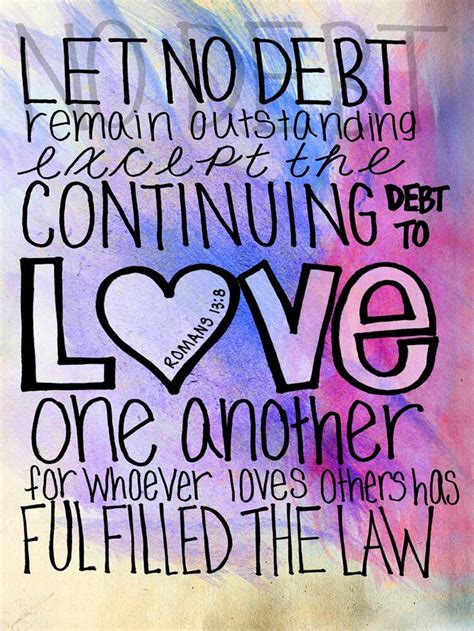 NO DEBT
LET NO DEBT
remain outstanding
except the
CONTINUING DEBT
TO
LOVE
ROMANS 13:8
one another
for whoever loves others has
FULFILLED THE LAW